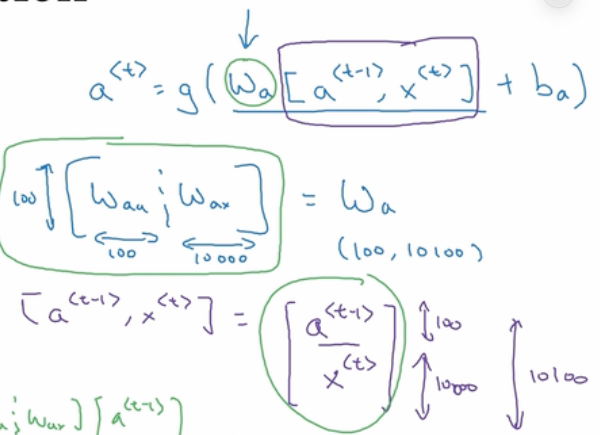 a^{<t>} = g(W_a [a^{<t-1>}, x^{<t>}] + b_a)
100 [W_{aa} ; W_{ax}] = W_a
100 10000 (100, 10100)
[a^{<t-1>}, x^{<t>}] = [a^{<t-1>} / x^{<t>}] 100 10000 10100
; W_{ax}] [a^{<t-1>}]